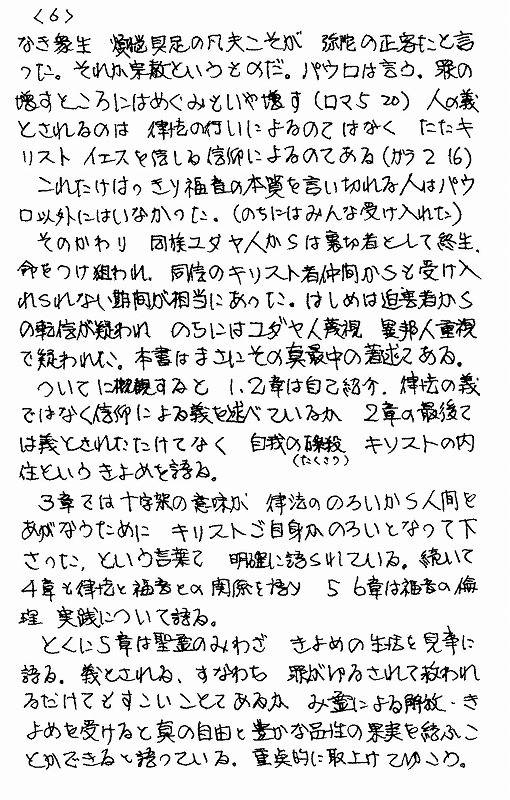 ＜6＞
なき衆生　煩悩具足の凡夫こそが　弥陀の正客だと言
った。それが宗教というものだ。パウロは言う。罪の
増すところにはめぐみもいや増す（ロマ5 20）人の義
とされるのは　律法の行いによるのではなく　ただキ
リスト イエスを信じる信仰によるのである（ガラ2 16）
これだけはっきり福音の本質を言い切れる人はパウ
ロ以外にはいなかった。（のちにはみんな受け入れた）
そのかわり　同族ユダヤ人からは裏切者として終生、
命をつけ狙われ、同信のキリスト者仲間からも受け入
れられない期間が相当にあった。はじめは迫害者から
の転信が疑われ　のちにはユダヤ人蔑視　異邦人重視
で疑われた。本書はまさにその真最中の著述である。
ついでに概観すると　1、2章は自己紹介、律法の義
ではなく信仰による義を述べているが　2章の最後で
は義とされただけでなく　自我の磔殺　キリストの内
（たくさつ）
住というきよめを語る。
3章では十字架の意味が　律法ののろいから人間を
あがなうために　キリストご自身がのろいとなって下
さった、という言葉で　明確に語られている。続いて
4章も律法と福音との関係を語り　5 6章は福音の倫
理　実践について語る。
とくに5章は聖霊のみわざ　きよめの生活を見事に
語る。義とされる、すなわち　罪がゆるされて救われ
るだけでもすごいことであるが　み霊による解放・き
よめを受けると真の自由と豊かな品性の果実を結ぶこ
とができると語っている。重点的に取上げてゆこう。